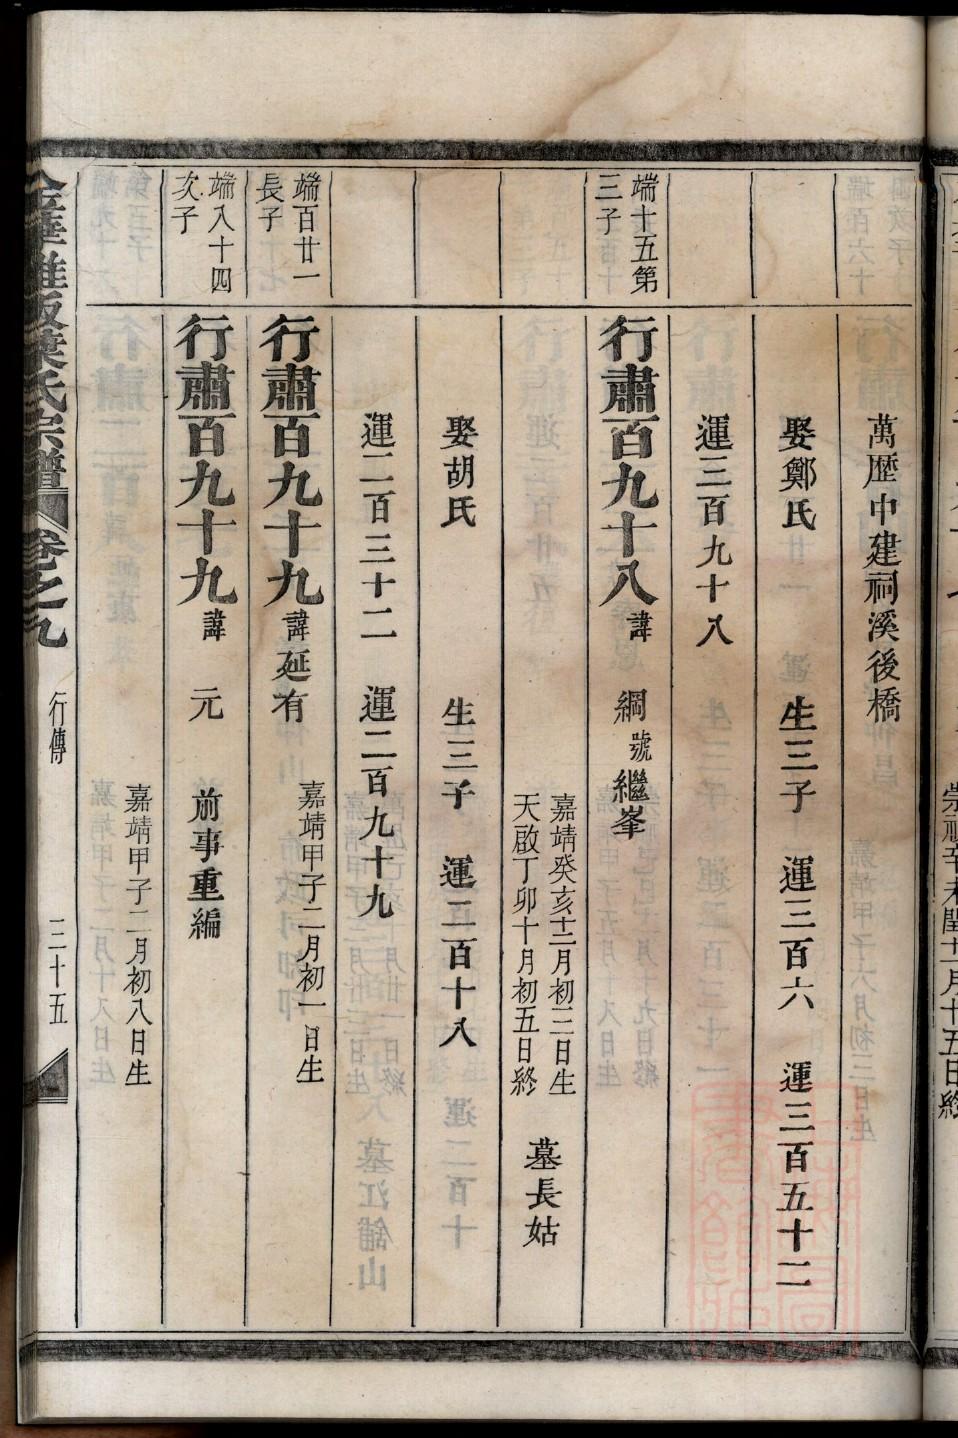 萬歷中建祠溪後橋
娶鄭氏 生三子 運三百六 運三百五十二
運三百九十八
端十五第
三子
行肅百九十八 諱 綱 號 繼峯
嘉靖癸亥十二月初三日生
天啟丁卯十月初五日終
墓長姑
娶胡氏 生三子 運二百十八
運二百三十二 運二百九十九
端百廿一
長子
行肅百九十九 諱延有
嘉靖甲子二月初一日生
端八十四
次子
行肅百九十九 諱 元 前事重編
嘉靖甲子二月初八日生
葉氏宗譜 卷之九 行傳 三十五